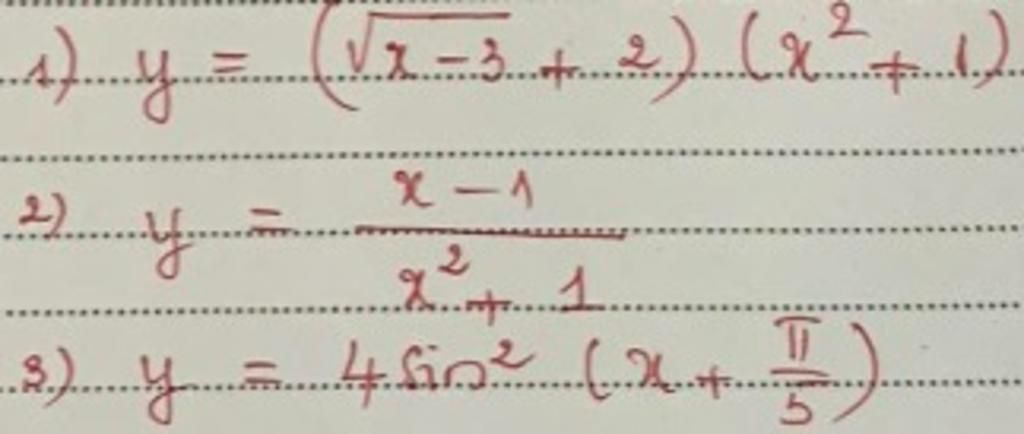 1) y = (√(x-3) + 2) (x² + 1)
2) y = (x - 1)/(x² + 1)
3) y = 4 sin² (x + π/5)